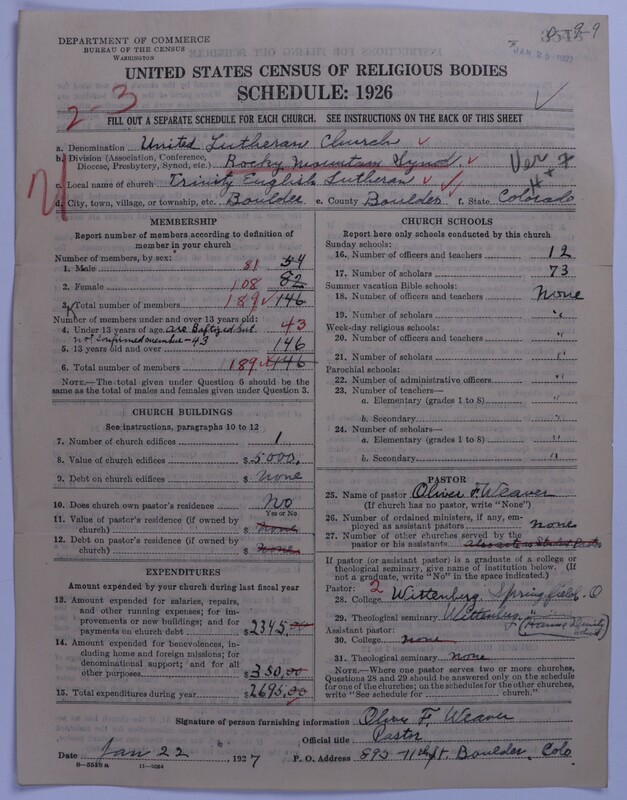 DEPARTMENT OF COMMERCE
BUREAU OF THE CENSUS
WASHINGTON
UNITED STATES CENSUS OF RELIGIOUS BODIES
SCHEDULE: 1926
2-3
FILL OUT A SEPARATE SCHEDULE FOR EACH CHURCH. SEE INSTRUCTIONS ON THE BACK OF THIS SHEET
a. Denomination United Lutheran Church
b. Division (Association, Conference,
Diocese, Presbytery, Synod, etc.) Rocky Mountain Synod
c. Local name of church Trinity English Lutheran
d. City, town, village, or township, etc. Boulder e. County Boulder f. State Colorado
Ver
MEMBERSHIP
Report number of members according to definition of
member in your church
Number of members, by sex:
1. Male 81
2. Female 108 82
3. Total number of members 189 146
Number of members under and over 13 years old:
4. Under 13 years of age are Baptized but 43
not confirmed members - 43
5. 13 years old and over 146
6. Total number of members 189 146
NOTE.—The total given under Question 6 should be the
same as the total of males and females given under Question 3.
CHURCH BUILDINGS
See instructions, paragraphs 10 to 12
7. Number of church edifices 1
8. Value of church edifices $ 5000.
9. Debt on church edifices $ None
10. Does church own pastor's residence No
Yes or No
11. Value of pastor's residence (if owned by
church) $ None
12. Debt on pastor's residence (if owned by
church) $ None
EXPENDITURES
Amount expended by your church during last fiscal year
13. Amount expended for salaries, repairs,
and other running expenses; for im-
provements or new buildings; and for
payments on church debt $ 2345.00
14. Amount expended for benevolences, in-
cluding home and foreign missions; for
denominational support; and for all
other purposes $ 350.00
15. Total expenditures during year $ 2695.00
CHURCH SCHOOLS
Report here only schools conducted by this church
Sunday schools:
16. Number of officers and teachers 12
17. Number of scholars 73
Summer vacation Bible schools:
18. Number of officers and teachers None
19. Number of scholars "
Week-day religious schools:
20. Number of officers and teachers "
21. Number of scholars "
Parochial schools:
22. Number of administrative officers "
23. Number of teachers—
a. Elementary (grades 1 to 8) "
b. Secondary "
24. Number of scholars—
a. Elementary (grades 1 to 8) "
b. Secondary "
PASTOR
25. Name of pastor Oliver F. Weaver
(If church has no pastor, write "None")
26. Number of ordained ministers, if any, em-
ployed as assistant pastors none
27. Number of other churches served by the
pastor or his assistants
If pastor (or assistant pastor) is a graduate of a college or
theological seminary, give name of institution below. (If
not a graduate, write "No" in the space indicated.)
Pastor: 2
28. College Wittenberg Springfield, O
29. Theological seminary Wittenberg
Assistant pastor:
30. College none
31. Theological seminary none
NOTE.—Where one pastor serves two or more churches,
Questions 28 and 29 should be answered only on the schedule
for one of the churches; on the schedules for the other churches,
write "See schedule for church."
Signature of person furnishing information Oliver F. Weaver
Official title Pastor
Date Jan 22, 1927 P. O. Address 892 11th St. Boulder, Colo
8—5518 a